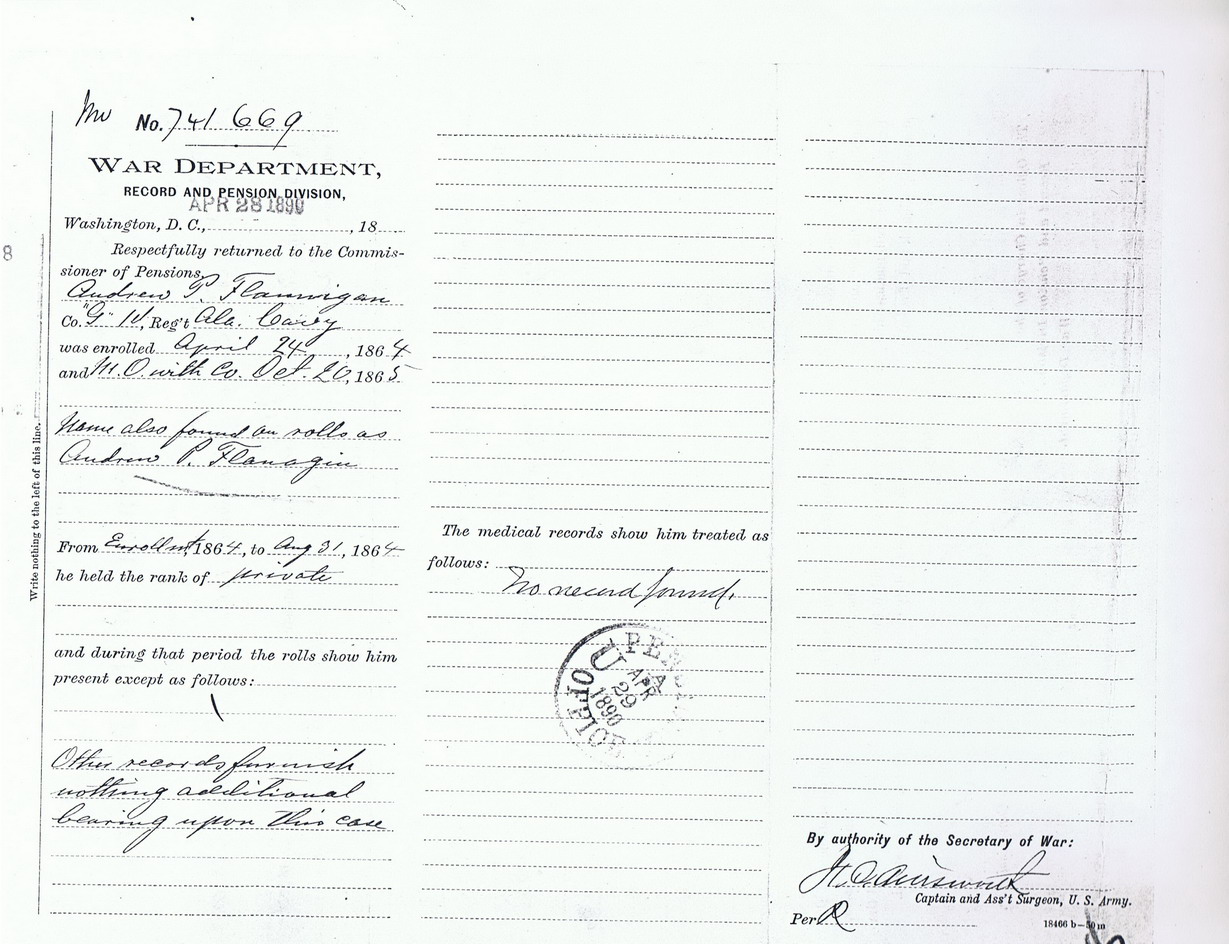 Mw No. 741 669
WAR DEPARTMENT,
RECORD AND PENSION DIVISION,
APR 28 1890
Washington, D. C., , 18
Respectfully returned to the Commis-
sioner of Pensions.
Andrew P. Flannigan
Co. "G" 1st, Reg't Ala. Cavy
was enrolled April 24, 1864
and M.O. with Co. Oct. 20, 1865
Name also found on rolls as
Andrew P. Flanagin
From Enrollmt, 1864, to Aug 31, 1864
he held the rank of private
and during that period the rolls show him
present except as follows:
Other records furnish
nothing additional
bearing upon this case
Write nothing to the left of this line.
8
The medical records show him treated as
follows:
No record found.
U.S. PEN
APR
29
1890
OFFICE
By authority of the Secretary of War:
F. C. Ainsworth
Captain and Ass't Surgeon, U. S. Army.
Per R
18466 b—50 m